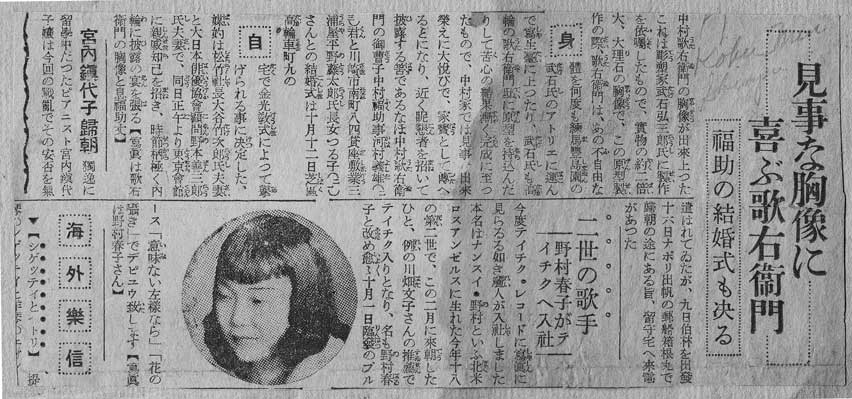 見事な胸像に
喜ぶ歌右衞門
福助の結婚式も決る
中村歌右衞門の胸像が出來上つた
これは彫塑家武石弘三郎氏に製作
を依囑したもので、實物の約二倍
大、大理石の胸像で、この原型製
作の際、歌右衞門は、あの不自由な
身體を何度も練馬豐玉園の
武石氏のアトリエに運ん
で寫生臺に上つたり、武石氏も高
輪の歌右衞門邸に原型を持込んだ
りして苦心の結果漸く完成に至つ
たもので、中村家では見事な出來
榮えに大悅びで、家寶として傳へ
るとになり、近く昵懇者を招いて
披露する筈であるなほ中村歌右衞
門の御曹子中村福助事河村義雄
君と川崎市南町八四貸座敷業三
浦屋平野藤次郎氏長女つる子
さんとの結婚式は十月十二日芝區
高輪車町九の
自宅で金光敎式によつて擧
げられる事に決定した、
媒妁は松竹社長大谷竹次郎氏夫妻
と大日本俳優協會顧問野本善三郎
氏夫妻で、同日正午より東京會館
に親戚知己を招き、時節柄極く內
輪に披露の宴を張る【寫眞は歌右
衞門の胸像と息福助丈】
宮內鎭代子歸朝
獨逸に
留學中だつたピアニスト宮內鎭代
子孃は今回の戰亂でその安否を氣
遣はれてゐたが、九日伯林を出發
十六日ナポリ出帆の郵船箱根丸で
歸朝の途にある旨、留守宅へ來電
があつた
二世の歌手
野村春子がテ
イチクへ入社
今度テイチク・レコードに寫眞に
見らるる如き麗人が入社しました
本名はナンスイ・野村といふ北米
ロスアンゼルスに生れた今年十八
の第二世で、この二月に來朝した
ひと、例の川畑文子さんの推薦で
テイチク入りとなり、名も野村春
子と改め愈々十月一日臨發のブル
ース「意味ない左樣なら」「花の
囁き」でデビユウ致します【寫眞
は野村春子さん】
海外樂信
▼【シゲッテイとペトリ】